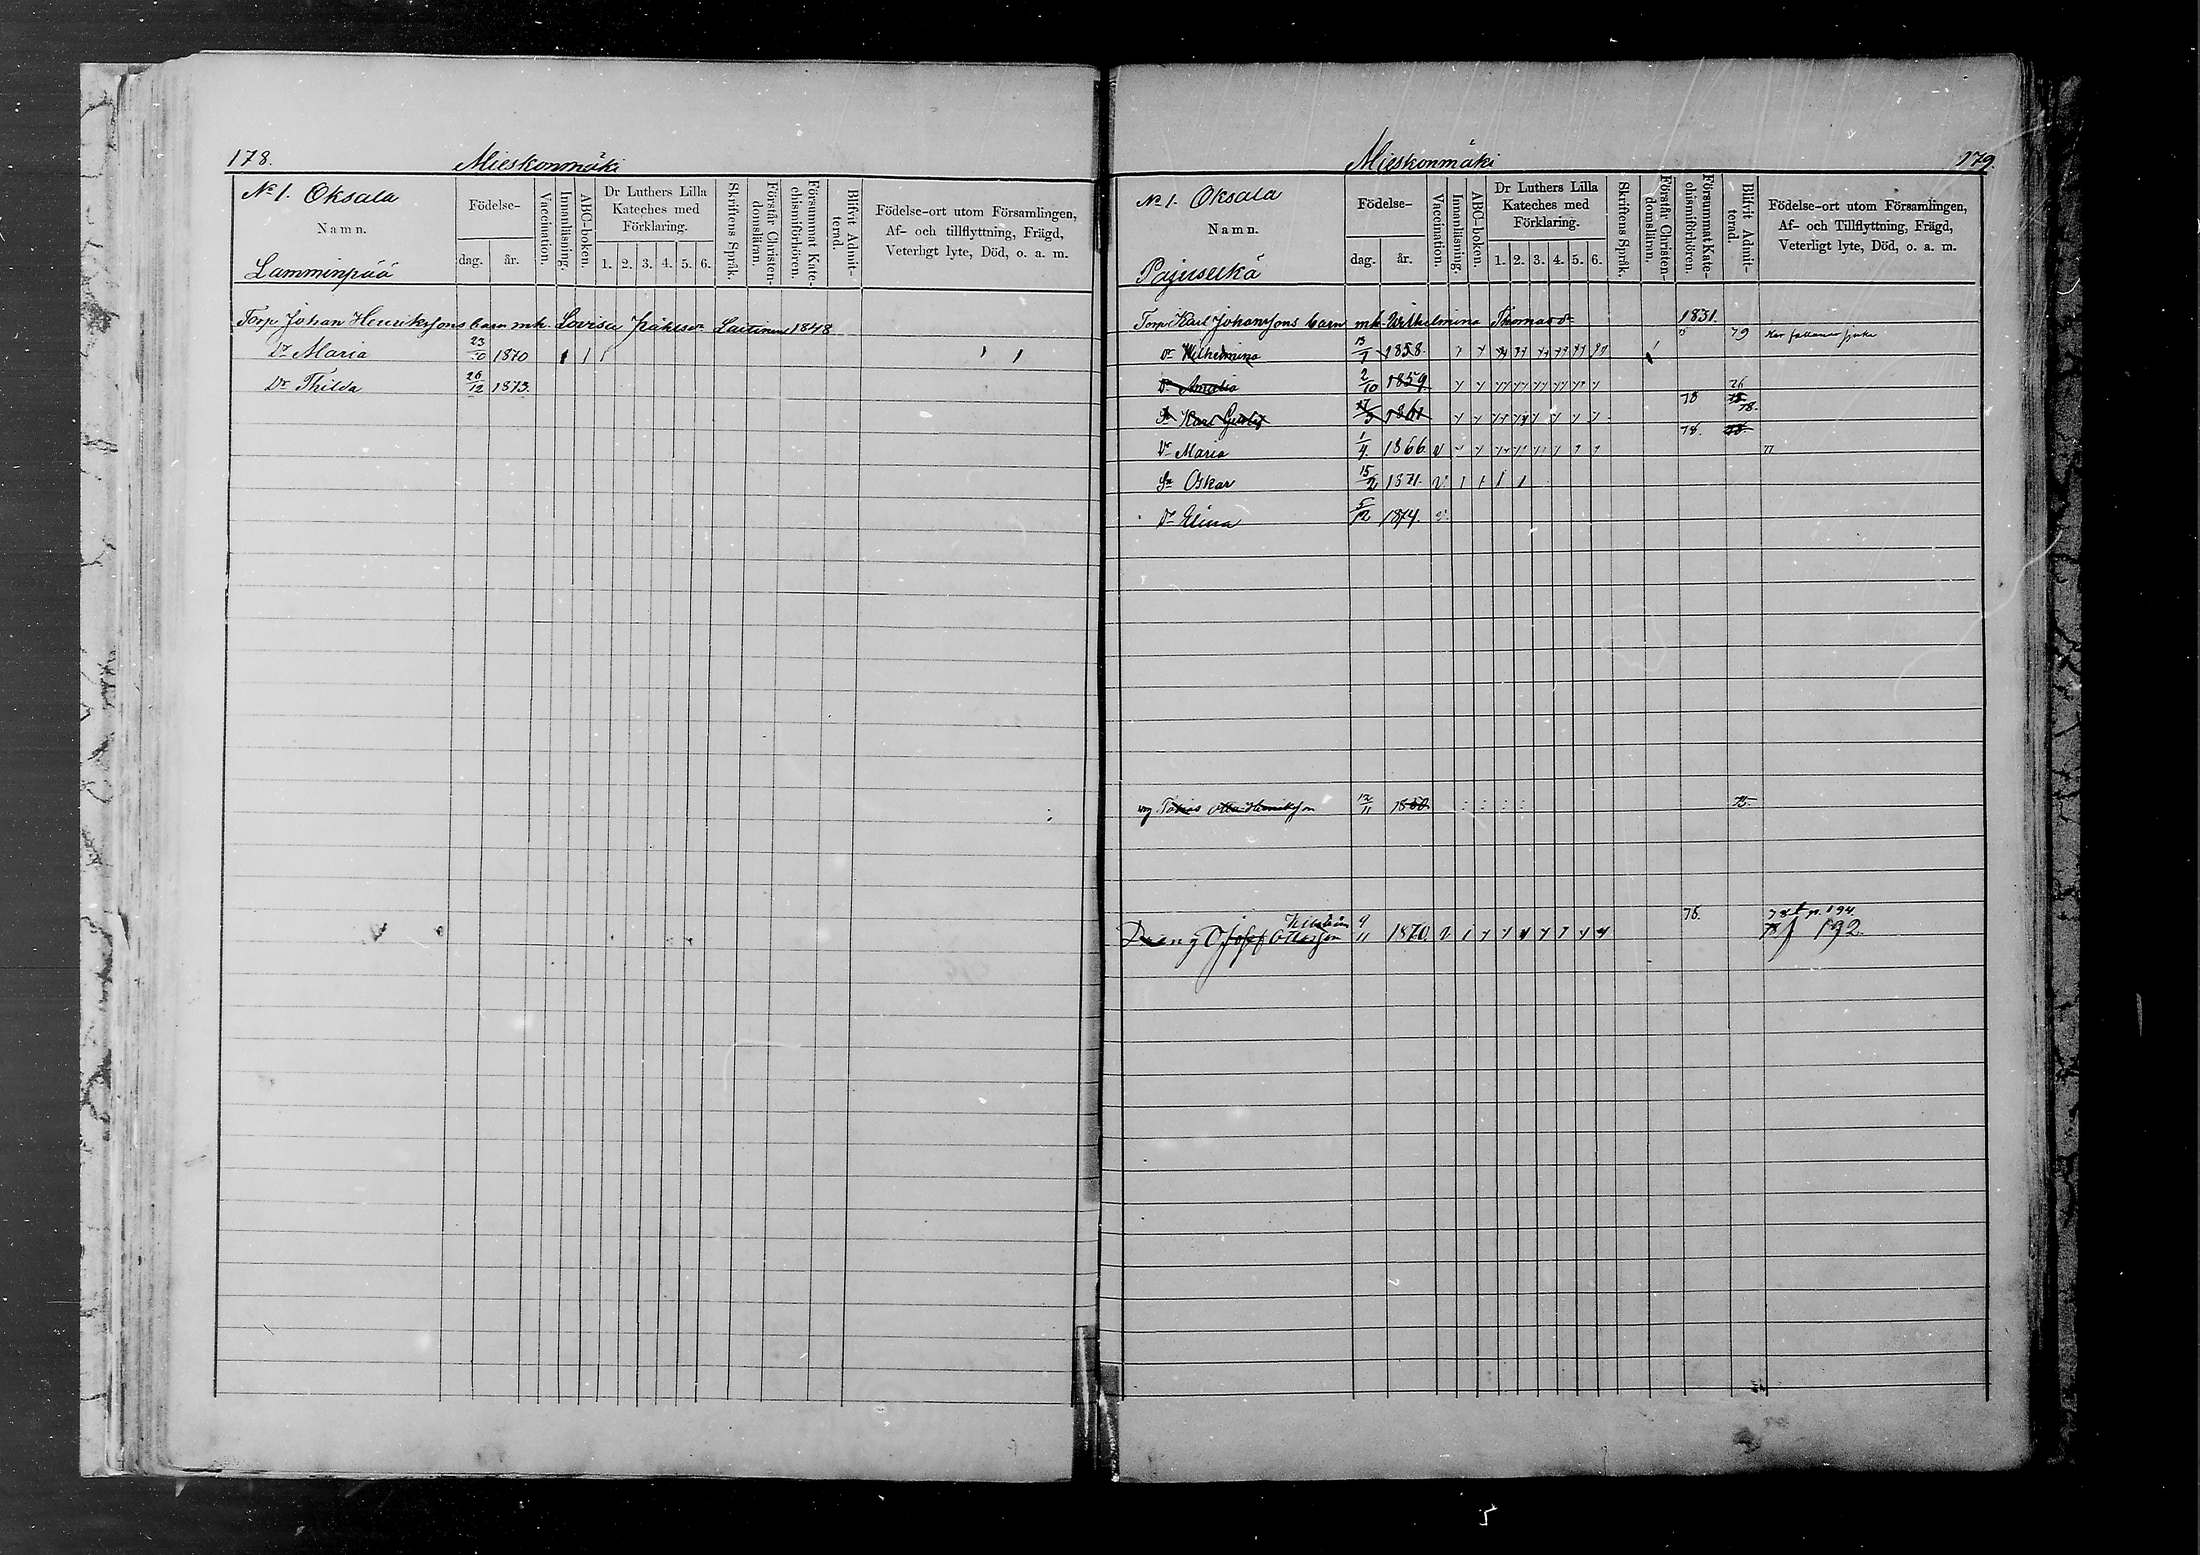 178.
Mieskonmäki
No 1. Oksala
Namn.
Lamminpää
Födelse-
dag.
år.
Vaccination.
Innanläsning.
ABC-boken.
Dr Luthers Lilla
Kateches med
Förklaring.
1. 2. 3. 4. 5. 6.
Skriftens Språk.
Förstår Christen-
domsläran.
Försummat Kate-
chismiförhören.
Blifvit Admit-
terad.
Födelse-ort utom Församlingen,
Af- och tillflyttning, Frägd,
Veterligt lyte, Död, o. a. m.
Torp. Johan Henrikssons barn m h Lovisa 1848
Dr Maria 23/10 1870
Dr Thilda 26/12 1873.
Mieskonmäki
179.
No 1. Oksala
Namn.
Pajuselkä
Födelse-
dag.
år.
Vaccination.
Innanläsning.
ABC-boken.
Dr Luthers Lilla
Kateches med
Förklaring.
1. 2. 3. 4. 5. 6.
Skriftens Språk.
Förstår Christen-
domsläran.
Försummat Kate-
chismiförhören.
Blifvit Admit-
terad.
Födelse-ort utom Församlingen,
Af- och Tillflyttning, Frägd,
Veterligt lyte, Död, o. a. m.
Torp. Karl Johanssons barn m h Wilhelmina Thomasdr 1831.
Dr Wilhelmina 1858. 79
Dr Amalia 2/10 1859.
Sn Karl Gustaf 1861 78 78.
Dr Maria 1866. v 78.
Sn Oskar 15/2 1871. v
Dr Elina 5/12 1874. v
Tobias Henriksson 12/11
Dräng Josef Ottosson 9/11 1870 v 78. 78 t p. 194.
78 f 192.